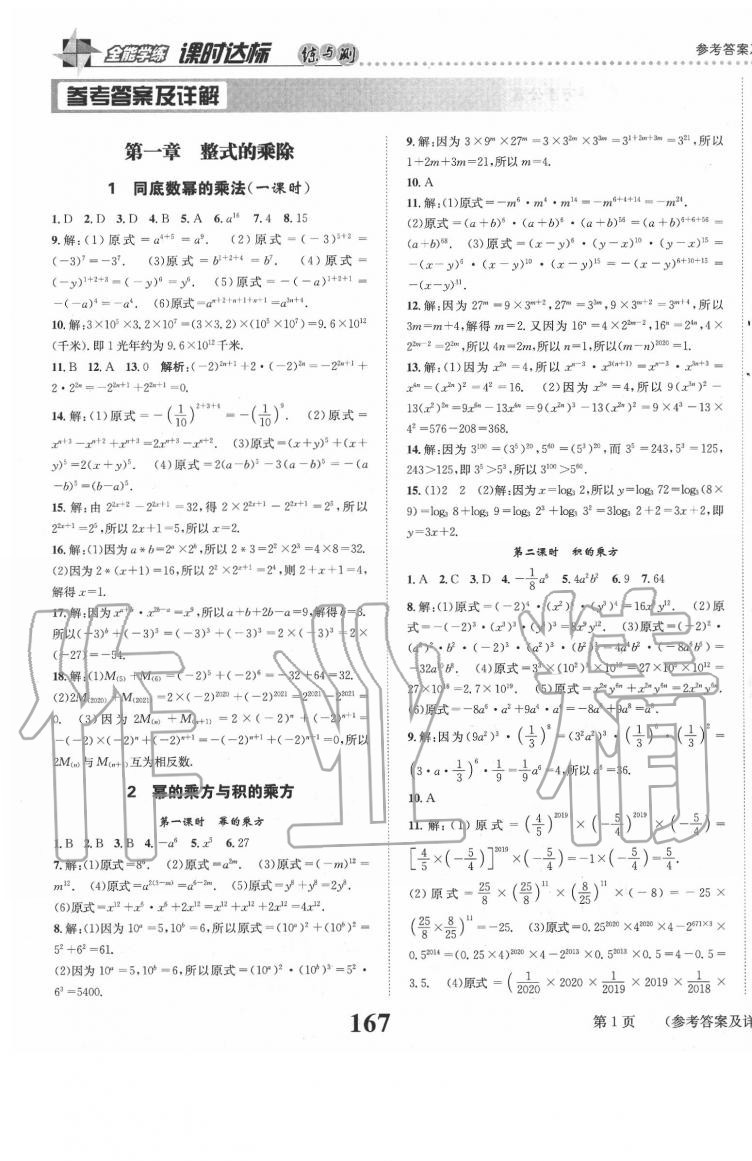 全能学练 课时达标 练与测
参考答案及
参考答案及详解
第一章 整式的乘除
1 同底数幂的乘法(一课时)
1. D 2. D 3. D 4. B 5. A 6. a¹⁶ 7. 4 8. 15
9. 解:(1)原式=a⁴⁺⁵=a⁹. (2)原式=(-3)⁵⁺²=
(-3)⁷=-3⁷. (3)原式=b¹⁺²⁺⁴=b⁷. (4)原式=
(-y)¹⁺²⁺³=(-y)⁶=y⁶. (5)原式=-(-a)¹⁺²⁺¹=
-(-a)⁴=-a⁴. (6)原式=aⁿ⁺²⁺ⁿ⁺¹⁺ⁿ⁺¹=a³ⁿ⁺⁴.
10. 解:3×10⁵×3.2×10⁷=(3×3.2)×(10⁵×10⁷)=9.6×10¹²
(千米). 即1光年约为9.6×10¹²千米.
11. B 12. A 13. 0 解析:(-2)²ⁿ⁺¹+2·(-2)²ⁿ=-2²ⁿ⁺¹+
2·2²ⁿ=-2²ⁿ⁺¹+2²ⁿ⁺¹=0.
14. 解:(1)原式=-(1/10)²⁺³⁺⁴=-(1/10)⁹. (2)原式=
xⁿ⁺³-xⁿ⁺²+xⁿ⁺³=2xⁿ⁺³-xⁿ⁺². (3)原式=(x+y)⁵+(x+
y)⁵=2(x+y)⁵. (4)原式=2(a-b)⁵-3(a-b)⁵=-(a
-b)⁵=(b-a)⁵.
15. 解:由2²ˣ⁺²-2²ˣ⁺¹=32,得2×2²ˣ⁺¹-2²ˣ⁺¹=2⁵,所以
2²ˣ⁺¹=2⁵,所以2x+1=5,所以x=2.
16. 解:(1)因为a*b=2ᵃ×2ᵇ,所以2*3=2²×2³=4×8=32.
(2)因为2*(x+1)=16,所以2²×2ˣ⁺¹=2⁴,则2+x+1=4,
解得x=1.
17. 解:因为xᵃ⁺ᵇ·x²ᵇ⁻ᵃ=x⁹,所以a+b+2b-a=9,解得b=3.
所以(-3)ᵇ+(-3)³=(-3)³+(-3)³=2×(-3)³=2×
(-27)=-54.
18. 解:(1)M₍₅₎+M₍₆₎=(-2)⁵+(-2)⁶=-32+64=32.
(2)2M₍₂₀₂₀₎+M₍₂₀₂₁₎=2×(-2)²⁰²⁰+(-2)²⁰²¹=2²⁰²¹-2²⁰²¹=
0. (3)因为2M₍ₙ₎+M₍ₙ₊₁₎=2×(-2)ⁿ+(-2)ⁿ⁺¹=
-(-2)×(-2)ⁿ+(-2)ⁿ⁺¹=-(-2)ⁿ⁺¹+(-2)ⁿ⁺¹=0,所以
2M₍ₙ₎与M₍ₙ₊₁₎互为相反数.
2 幂的乘方与积的乘方
第一课时 幂的乘方
1. B 2. B 3. B 4. -a⁶ 5. x⁵ 6. 27
7. 解:(1)原式=8⁶. (2)原式=a²ᵐ. (3)原式=(-m)¹²=
m¹². (4)原式=a²⁽³⁻ᵐ⁾=a⁶⁻²ᵐ. (5)原式=y⁸+y⁸=2y⁸.
(6)原式=x¹²+x⁶·x⁶+2x¹²=x¹²+x¹²+2x¹²=4x¹².
8. 解:(1)因为10ᵃ=5,10ᵇ=6,所以原式=(10ᵃ)²+(10ᵇ)²=
5²+6²=61.
(2)因为10ᵃ=5,10ᵇ=6,所以原式=(10ᵃ)²·(10ᵇ)³=5²·
6³=5400.
9. 解:因为3×9ᵐ×27ᵐ=3×3²ᵐ×3³ᵐ=3¹⁺²ᵐ⁺³ᵐ=3²¹,所以
1+2m+3m=21,所以m=4.
10. A
11. 解:(1)原式=-m⁶·m⁴·m¹⁴=-m⁶⁺⁴⁺¹⁴=-m²⁴.
(2)原式=(a+b)⁶·(a+b)⁶·(a+b)⁵⁶=(a+b)⁶⁺⁶⁺⁵⁶=
(a+b)⁶⁸. (3)原式=(x-y)⁶·(y-x)¹⁰·(y-x)¹⁵=
-(x-y)⁶·(x-y)¹⁰·(x-y)¹⁵=-(x-y)⁶⁺¹⁰⁺¹⁵=
-(x-y)³¹.
12. 解:因为27ᵐ=9×3ᵐ⁺²,27ᵐ=3³ᵐ,9×3ᵐ⁺²=3ᵐ⁺⁴,所以
3m=m+4,解得m=2. 又因为16ⁿ=4×2²ⁿ⁻²,16ⁿ=2⁴ⁿ,4×
2²ⁿ⁻²=2²ⁿ,所以4n=2n,所以n=1,所以(m-n)²⁰²⁰=1.
13. 解:(1)因为xⁿ=4,所以xⁿ⁻³·x³⁽ⁿ⁺¹⁾=xⁿ⁻³·x³ⁿ⁺³=
x⁴ⁿ=(x²ⁿ)²=4²=16. (2)因为x²ⁿ=4,所以9(x³ⁿ)²-
13(x²)²ⁿ=9x⁶ⁿ-13x⁴ⁿ=9(x²ⁿ)³-13(x²ⁿ)²=9×4³-13×
4²=576-208=368.
14. 解:因为3¹⁰⁰=(3⁵)²⁰,5⁶⁰=(5³)²⁰,而3⁵=243,5³=125,
243>125,即3⁵>5³,所以3¹⁰⁰>5⁶⁰.
15. (1)2 2 (2)解:因为x=log₃2,所以y=log₃72=log₃(8×
9)=log₃8+log₃9=log₃2³+log₃3²=3log₃2+2=3x+2,即
y=3x+2.
第二课时 积的乘方
1. A 2. C 3. D 4. -1/8a⁶ 5. 4a²b² 6. 9 7. 64
8. 解:(1)原式=(-2)⁴·(x²)⁴·(y³)⁴=16x⁸y¹². (2)原
式=-(-2)³·(x³)³·(y⁴)³=8x⁹y¹². (3)原式=(-2)²·
(a³)²·b²·(-2)³·(a²)³·(b²)³=4a⁶b²·(-8a⁶b⁶)=
-32a¹²b⁸. (4)原式=3³×(10²)³×10¹²=27×10⁶×10¹²=
27×10¹⁸=2.7×10¹⁹. (5)原式=x²ⁿy⁶ⁿ+x²ⁿy⁶ⁿ=2x²ⁿy⁶ⁿ.
(6)原式=-8a⁶·a²+9a⁴·a⁴=-8a⁸+9a⁸=a⁸.
9. 解:因为(9a²)³·(1/3)⁸=(3²a²)³·(1/3)⁶·(1/3)²=
(3·a·1/3)⁶·1/9=1/9a⁶=4,所以a⁶=36.
10. A
11. 解:(1)原式=(4/5)²⁰¹⁹×(-5/4)²⁰¹⁹×(-5/4)=
[4/5×(-5/4)]²⁰¹⁹×(-5/4)=-1×(-5/4)=5/4.
(2)原式=25/8×(25/8)¹¹×(8/25)¹¹×(-8)=-25×
(25/8×8/25)¹¹=-25. (3)原式=0.25²⁰²⁰×4²⁰²⁰×4-2⁶⁷¹ˣ³×
0.5²⁰¹⁴=(0.25×4)²⁰²⁰×4-2²⁰¹³×0.5²⁰¹³×0.5=4-0.5=
3.5. (4)原式=(1/2020×2020×1/2019×2019×1/2018×
167
第1页 (参考答案及详
作业精